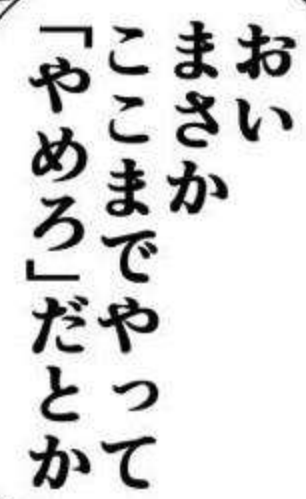 おい
まさか
ここまでやって
「やめろ」だとか